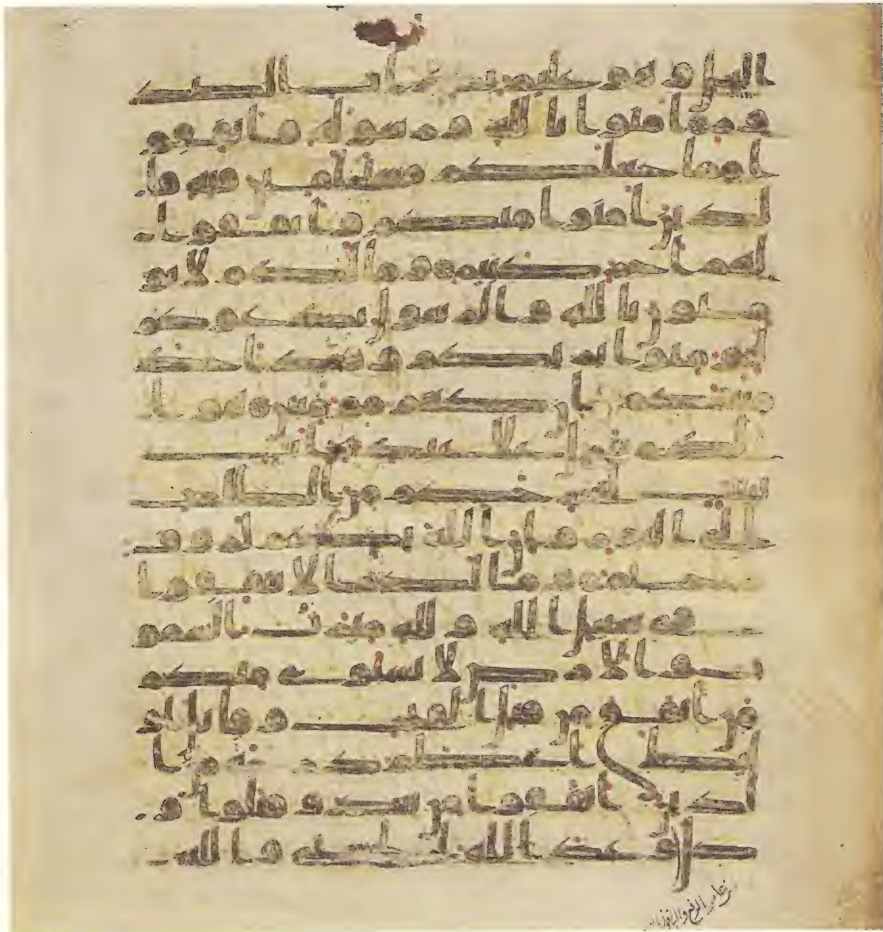 اليل وهو عليم بذات الصد
ور امنوا بالله ورسوله وانفقوا
مما جعلكم مستخلفين فيه فا
لذين امنوا منكم وانفقوا
لهم اجر كبير وما لكم لا تؤ
منون بالله والرسول يدعوكم
لتؤمنوا بربكم وقد اخذ
ميثقكم ان كنتم مؤمنين هو ا
لذي ينزل على عبده ايت
بينت ليخرجكم من الظلمت
الى النور وان الله بكم لروف
رحيم وما لكم الا تنفقوا
في سبيل الله ولله ميرث السمو
ت والارض لا يستوي منكم
من انفق من قبل الفتح وقتل اولئك
اعظم درجة من ا
لذين انفقوا من بعد وقتلوا و
كلا وعد الله الحسنى والله